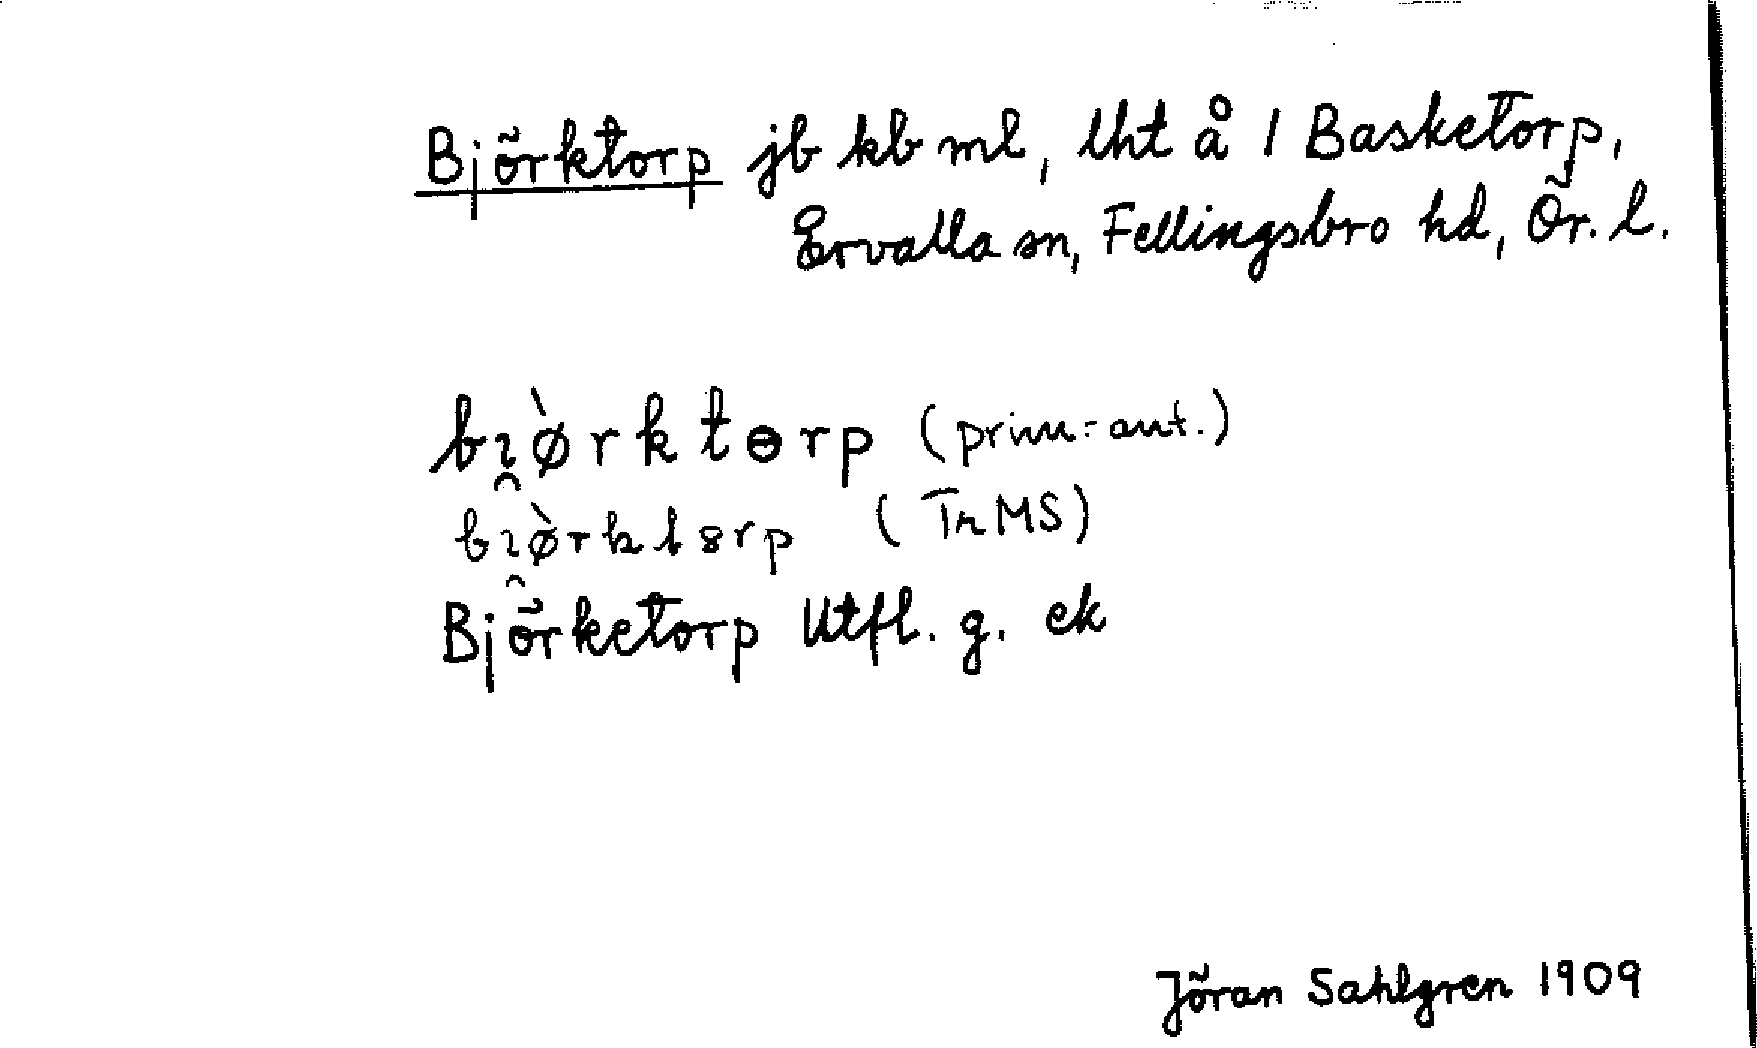 Björktorp jb kb ml, lht å 1 Basketorp,
Ervalla sn, Fellingsbro hd, Ör. l.
bı̯ø̀rktɵrp (prim.-ant.)
bı̯ø̀rktɞrp (Tr MS)
Björketorp Utfl. g. ek
Jöran Sahlgren 1909